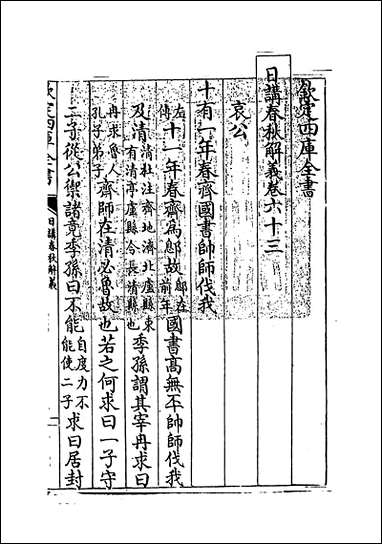 欽定四庫全書
日講春秋解義卷六十三
哀公
十有一年春齊國書帥師伐我
左傳十一年春齊為鄎故鄎在前年國書高無㔻帥師伐我
及清清杜注齊地濟北盧縣東有清亭盧縣今長清縣也季孫謂其宰冉求曰
冉求魯人孔子弟子齊師在清必魯故也若之何求曰一子守
二子從公禦諸竟季孫曰不能自度力不能使二子求曰居封
欽定四庫全書
日講春秋解義
一